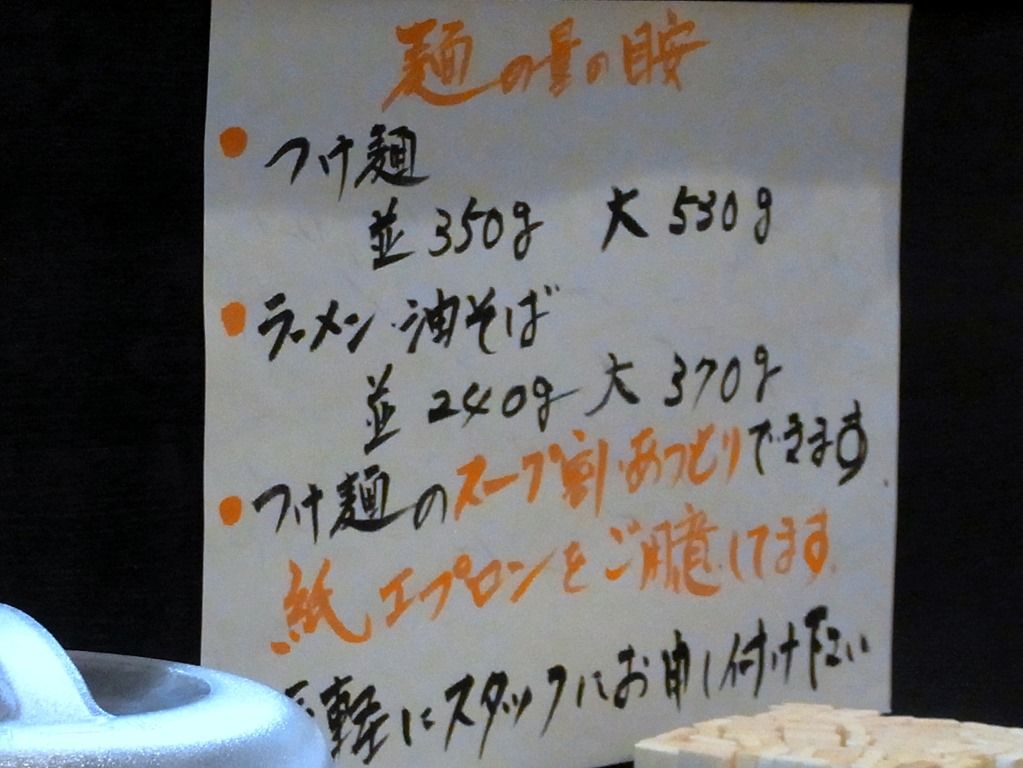 麺の量の目安
● つけ麺
並 350g 大 530g
● ラーメン・油そば
並 240g 大 370g
● つけ麺のスープ割・あつもりできます。
紙エプロンをご用意してます。
軽にスタッフにお申し付け下さい